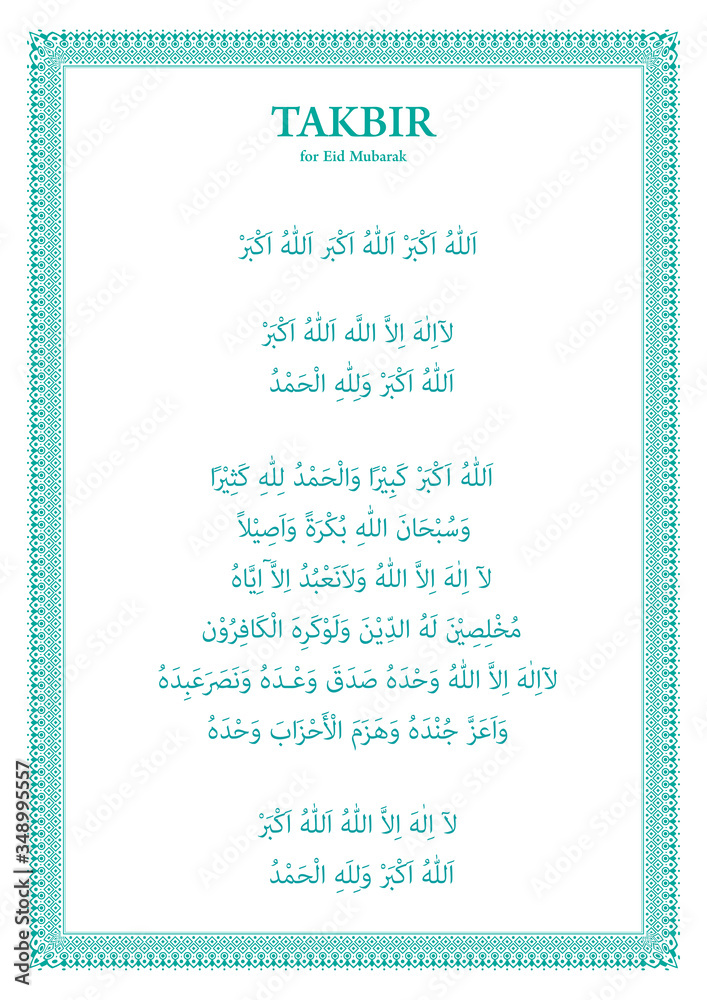 TAKBIR
for Eid Mubarak
اَللّٰهُ اَكْبَرْ اَللّٰهُ اَكْبَر اَللّٰهُ اَكْبَرْ
لآاِلٰهَ اِلاَّ اللَّه اَللّٰهُ اَكْبَرْ
اَللّٰهُ اَكْبَرْ وَلِلّٰهِ الْحَمْدُ
اَللّٰهُ اَكْبَرْ كَبِيْرًا وَالْحَمْدُ لِلّٰهِ كَثِيْرًا
وَسُبْحَانَ اللّٰهِ بُكْرَةً وَاَصِيْلاً
لآ اِلٰهَ اِلاَّ اللّٰهُ وَلاَنَعْبُدُ اِلاَّ اِيَّاهُ
مُخْلِصِيْنَ لَهُ الدِّيْنَ وَلَوْكَرِهَ الْكَافِرُوْن
لآاِلٰهَ اِلاَّ اللّٰهُ وَحْدَهُ صَدَقَ وَعْـدَهُ وَنَصَرَعَبِدَهُ
وَاَعَزَّ جُنْدَهُ وَهَزَمَ الْأَحْزَابَ وَحْدَهُ
لآ اِلٰهَ اِلاَّ اللّٰهُ اَللّٰهُ اَكْبَرْ
اَللّٰهُ اَكْبَرْ وَلِلَهِ الْحَمْدُ
Adobe Stock
348995557